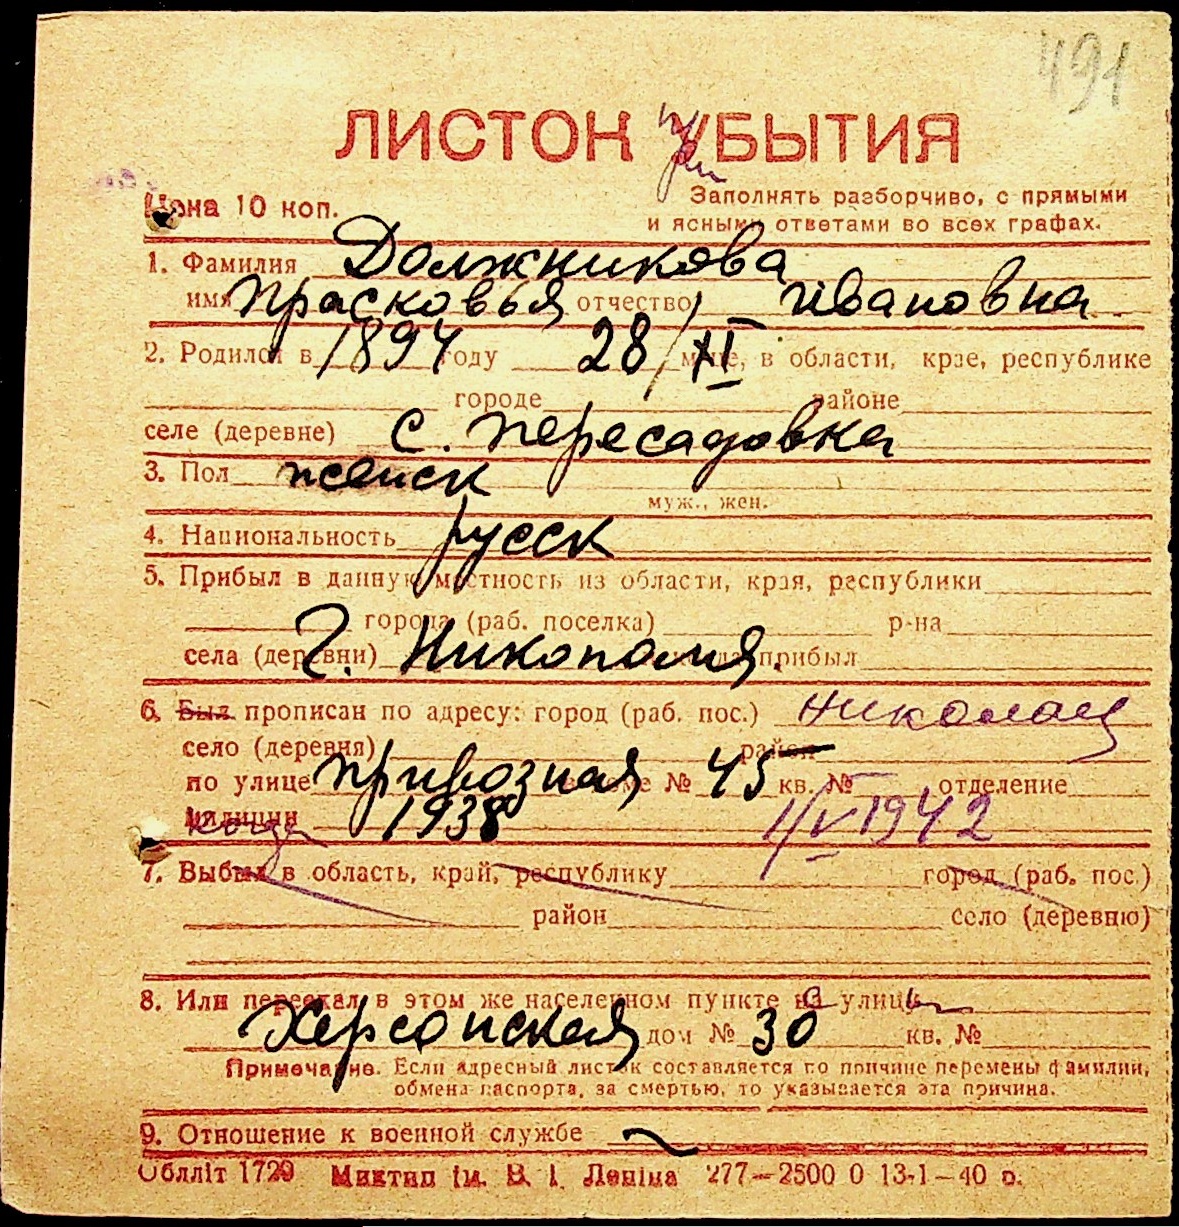 491
ЛИСТОК УБЫТИЯ
при
Цена 10 коп.
Заполнять разборчиво, с прямыми
и ясными ответами во всех графах.
1. Фамилия Должникова
имя Прасковья отчество Ивановна
2. Родился в 1894 году 28/XI м-це, в области, крае, республике
городе районе
селе (деревне) с. Пересадовка
3. Пол женск
муж., жен.
4. Национальность русск
5. Прибыл в данную местность из области, края, республики
города (раб. поселка) р-на
села (деревни) г. Никополя прибыл
6. Был прописан по адресу: город (раб. пос.) Николаев
село (деревня) район
по улице Привозная доме № 45 кв. № отделение
милиции когда 1938 1/V 1942
7. Выбыл в область, край, республику город (раб. пос.)
район село (деревню)
8. Или переехал в этом же населенном пункте на улицу
Херсонская дом № 30 кв. №
Примечание. Если адресный листок составляется по причине перемены фамилии,
обмена паспорта, за смертью, то указывается эта причина.
9. Отношение к военной службе
Облліт 1729 Миктип ім. В. І. Леніна 277—2500 0 13-1—40 р.